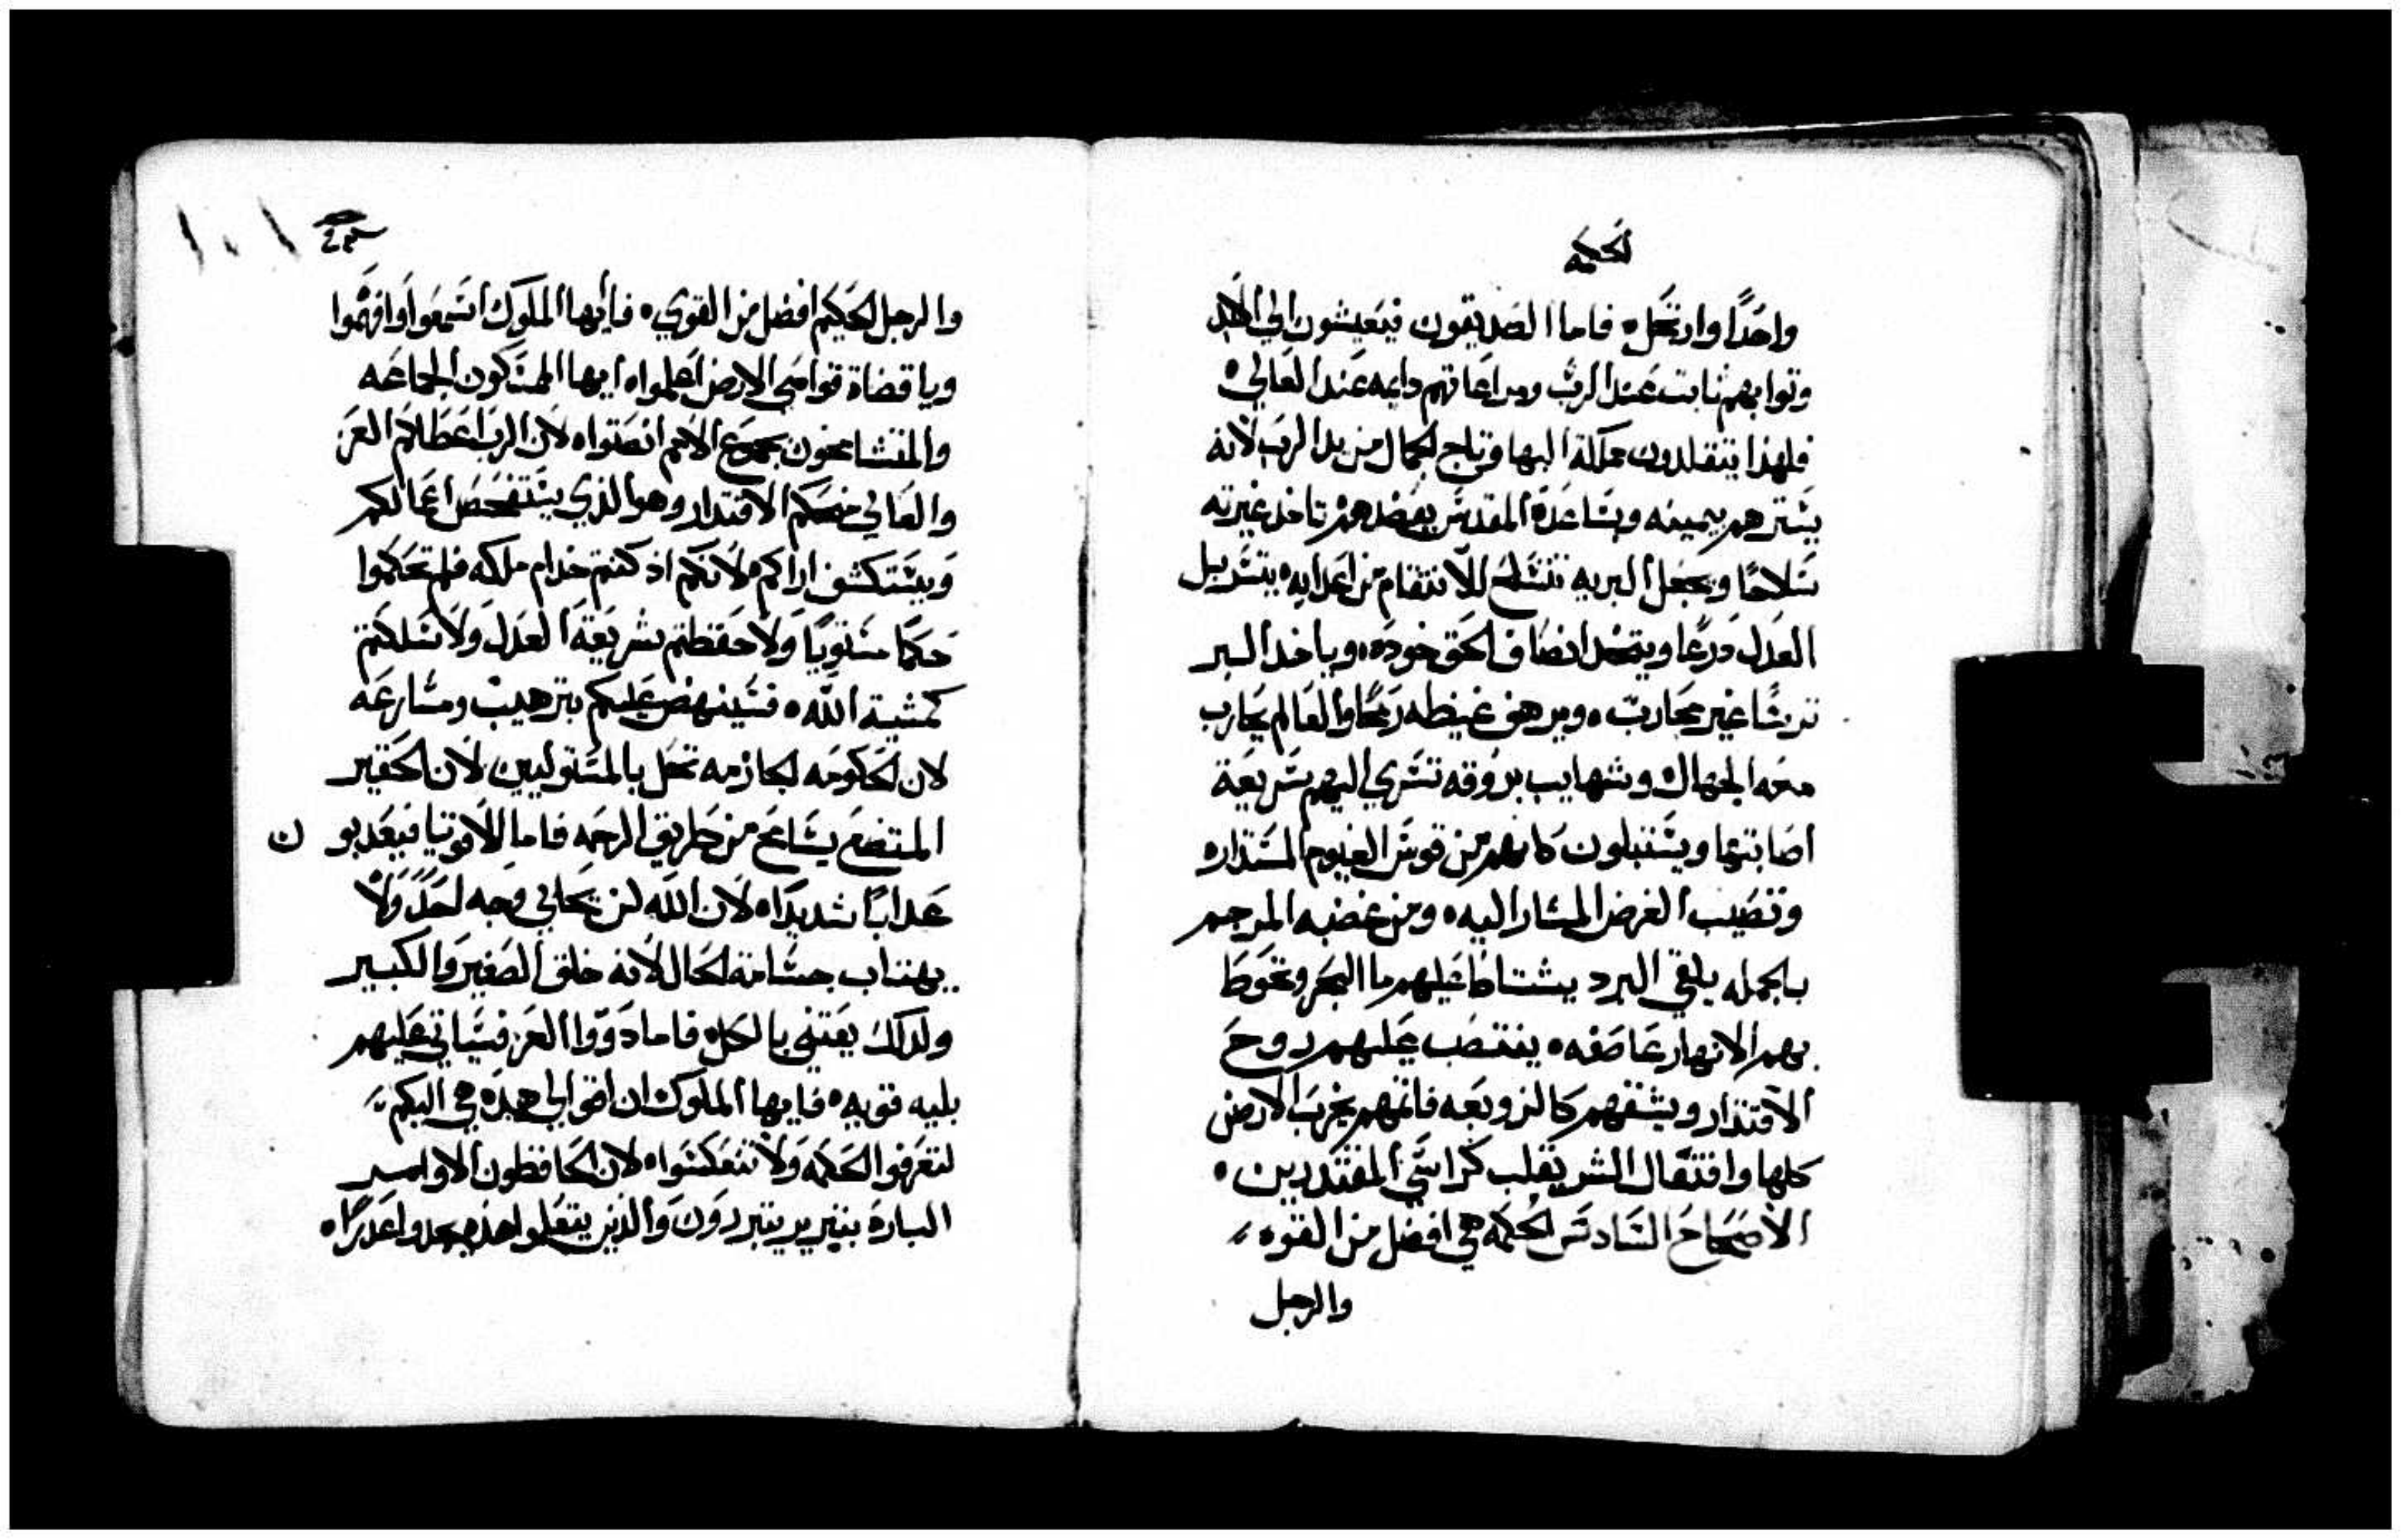 لحكمه
واحدًا وارتحل ه فاما الصديقون فيعيشون الي الابد
وتوابهم ثابت عند الرب ومراعاتهم دايمه عند العالي ه
فلهذا يتقلدون مملكة البها وتاج الجمال من يد الرب لانه
يسترهم بيمينه وبساعده المقدس يعضدهم تاخد غيرته
سلاحًا ويجعل البريه تتسلح للانتقام من اعدايه ه يتسربل
العدل درعًا ويتخد انصاف الحق خوده ه وياخد البر
ترسًا غير محارب ه ويرهف غيظه رمحًا والعالم يحارب
معه الجهال وشهايب بروقه تسري اليهم سريعة
اصابتها ويستنبلون كانهم من قوس الغيوم المستداره
وتصيب الغرض المشار اليه ه ومن غضبه المرجم
بالجمله يلقي البرد يشتاط عليهم ما البحر وتحوط
بهم الانهار عاصفه ه ينتصب عليهم روح
الاقتدار ويشقهم كالزوبعه فاتمهم يخرب الارض
كلها وافتعال الشر يقلب كراسي المقتدرين ه
الاصحاح السادس الحكمه هي افضل من القوه
والرجل
١٠١
والرجل الحكيم افضل من القوي ه فايها الملوك اسمعوا وافهموا
ويا قضاة قواصي الارض اعلموا ه ايها المتمسكون الجماعه
والمتشامخون بجموع الامم انصتوا ه لان الرب اعطاكم العز
والعالي منحكم الاقتدار وهو الذي يستفحص اعمالكم
ويستكشف اراكم ه لانكم اذ كنتم خدام ملكه فلم تحكموا
حكمًا مستويًا ولا حفظتم شريعة العدل ولا سلكتم
كمشية الله ه فسينهض عليكم بترهيب ومسارعه
لان الحكومه الجازمه تحل بالمستوليين لان الحقير
المتضع يسامح من طريق الرحمه فاما الاقويا فيعدبون
عدابًا شديدًا ه لان الله لن يحابي وجه احدً ولا
يهتاب جسامة الحال لانه خلق الصغير والكبير
ولدلك يعتني بالكل ه فاما دووا العز فسياتي عليهم
بليه قويه ه فايها الملوك ان اقوالي هده هي اليكم
لتعرفوا الحكمه ولا تتعكسوا ه لان الحافظون الاوامر
الباره بتبرير يتبررون والذين يتعلموا هذه يجدوا عدرًا ه